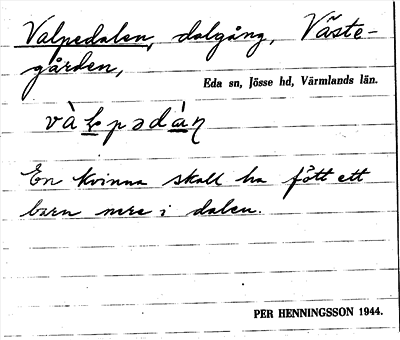 Valpedalen, dalgång, Väste-
gården,
Eda sn, Jösse hd, Värmlands län.
En kvinna skall ha fött ett
barn nere i dalen.
PER HENNINGSSON 1944.